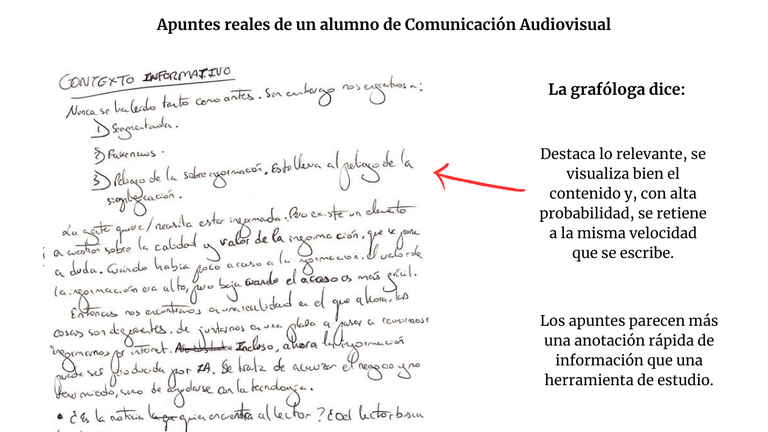 Apuntes reales de un alumno de Comunicación Audiovisual
CONTEXTO INFORMATIVO
Nunca se ha leído tanto como antes. Sin embargo nos enfrentamos a:
1) Segmentada.
2) Fakenews.
3) Peligro de la sobreinformación. Esto lleva al peligro de la
simplificación.
La gente quiere/necesita estar informada. Pero existe un elemento
a cuestión sobre la calidad y valor de la información, que se pone
a duda. Cuando había poco acceso a la información, el valor de
la información era alto, pero baja cuando el acceso es más fácil.
Entonces nos encontramos en una realidad en el que ahora, las
cosas son diferentes, de juntarnos en una plaza a pasar a
informarnos por internet. Incluso, ahora la información
puede ser producida por IA. Se trata de avanzar el negocio y no
tener miedo, sino de ayudarse con la tecnología.
• ¿Es la noticia quien encuentra al lector? ¿O el lector busca
La grafóloga dice:
Destaca lo relevante, se
visualiza bien el
contenido y, con alta
probabilidad, se retiene
a la misma velocidad
que se escribe.
Los apuntes parecen más
una anotación rápida de
información que una
herramienta de estudio.